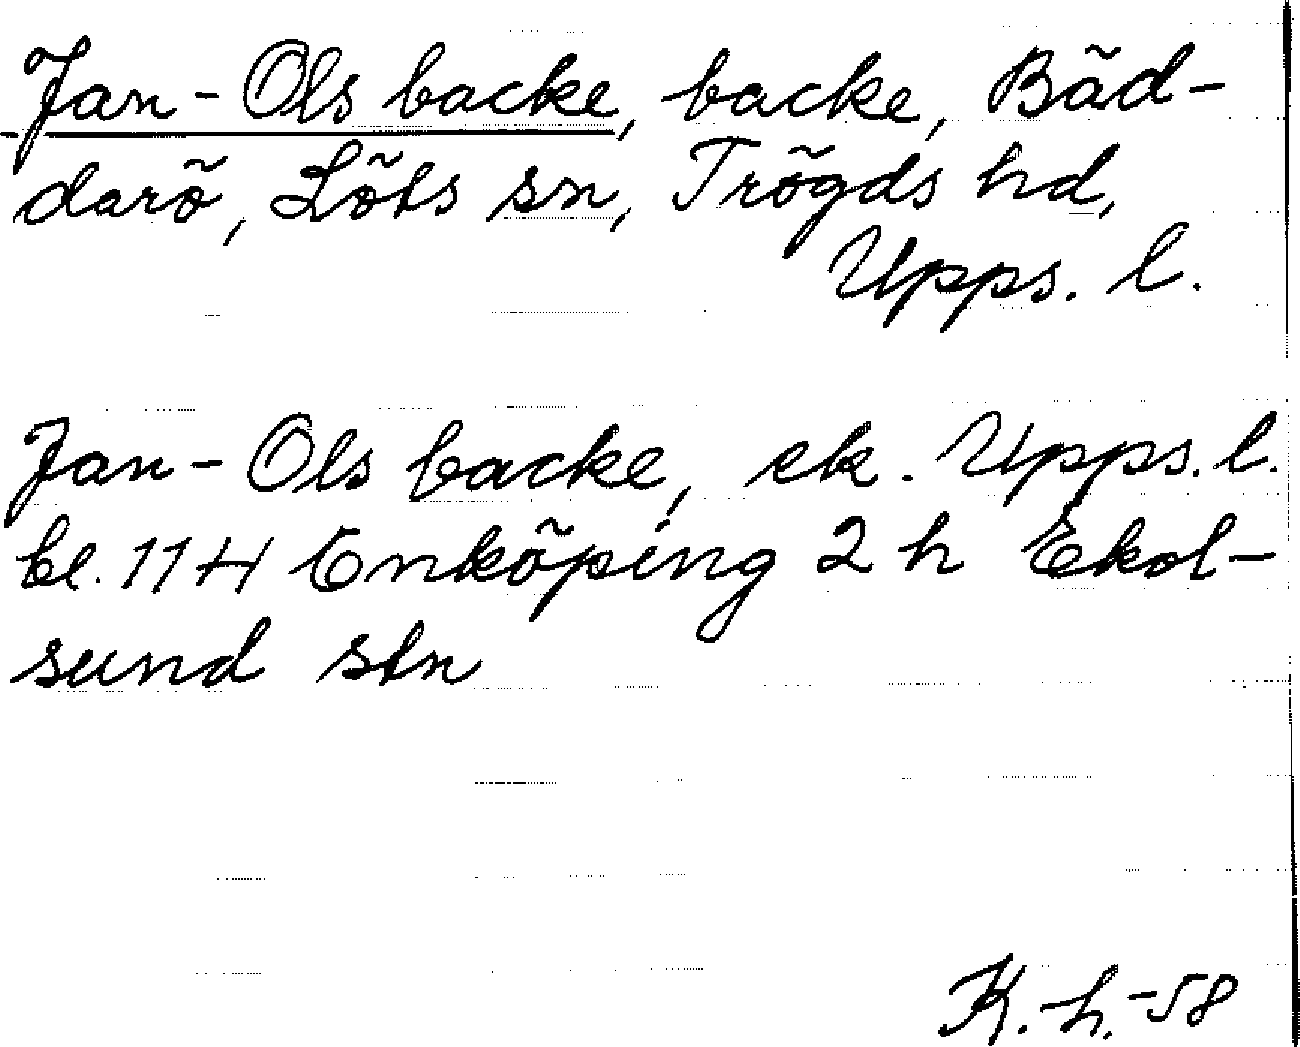 Jan-Ols backe, backe, Bäd-
darö, Löts sn, Trögds hd,
Upps. l.
Jan-Ols backe, ek. Upps. l.
bl. 114 Enköping 2 h Ekol-
sund stn
K.-h.-58